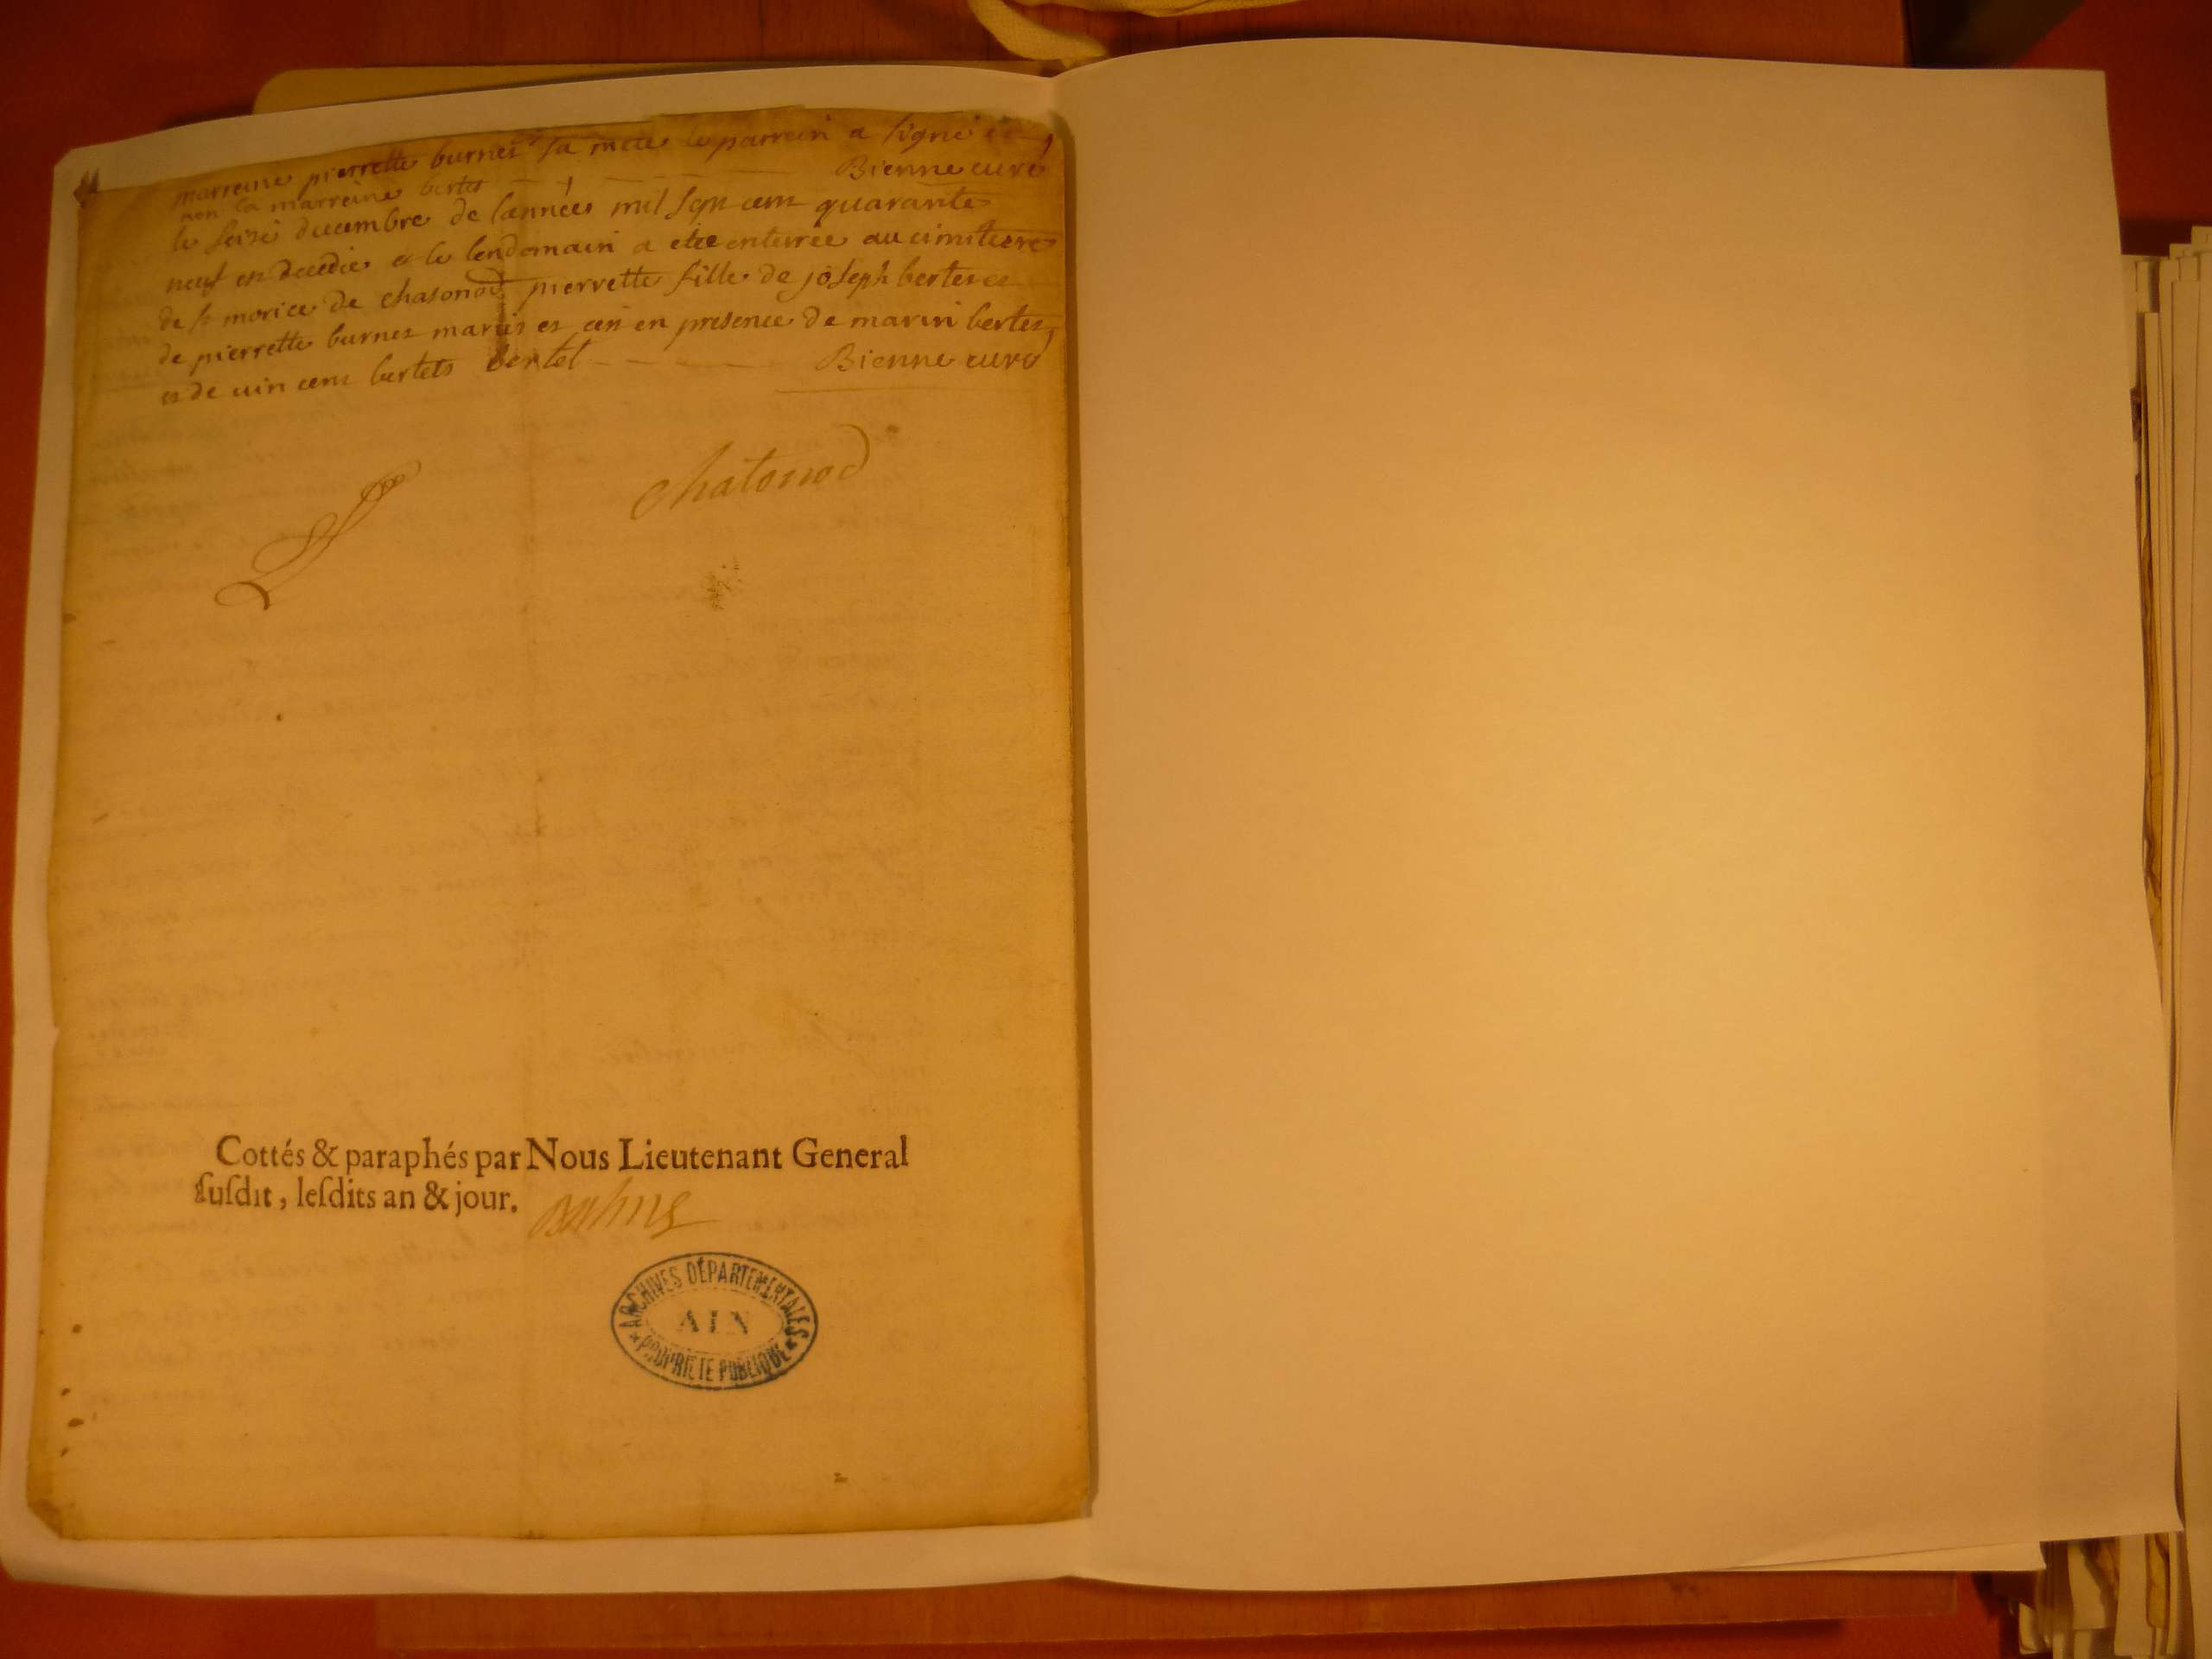 marreine pierrette burnet sa mere le parrein a signé et
non la marreine bertet Bienne curé
le seize decembre de lannée mil sept cent quarante
neuf en decedée et le lendemain a ete enterrée au cimitiere
de st morice de chatonod pierrette fille de joseph bertet et
de pierrette burnet mariés et ce en presence de marin bertet
et de vin cent bertets bertet Bienne curé
chatonod
Cottés & paraphés par Nous Lieutenant General
ſuſdit, leſdits an & jour.
ARCHIVES DÉPARTEMENTALES
AIN
PROPRIETE PUBLIQUE